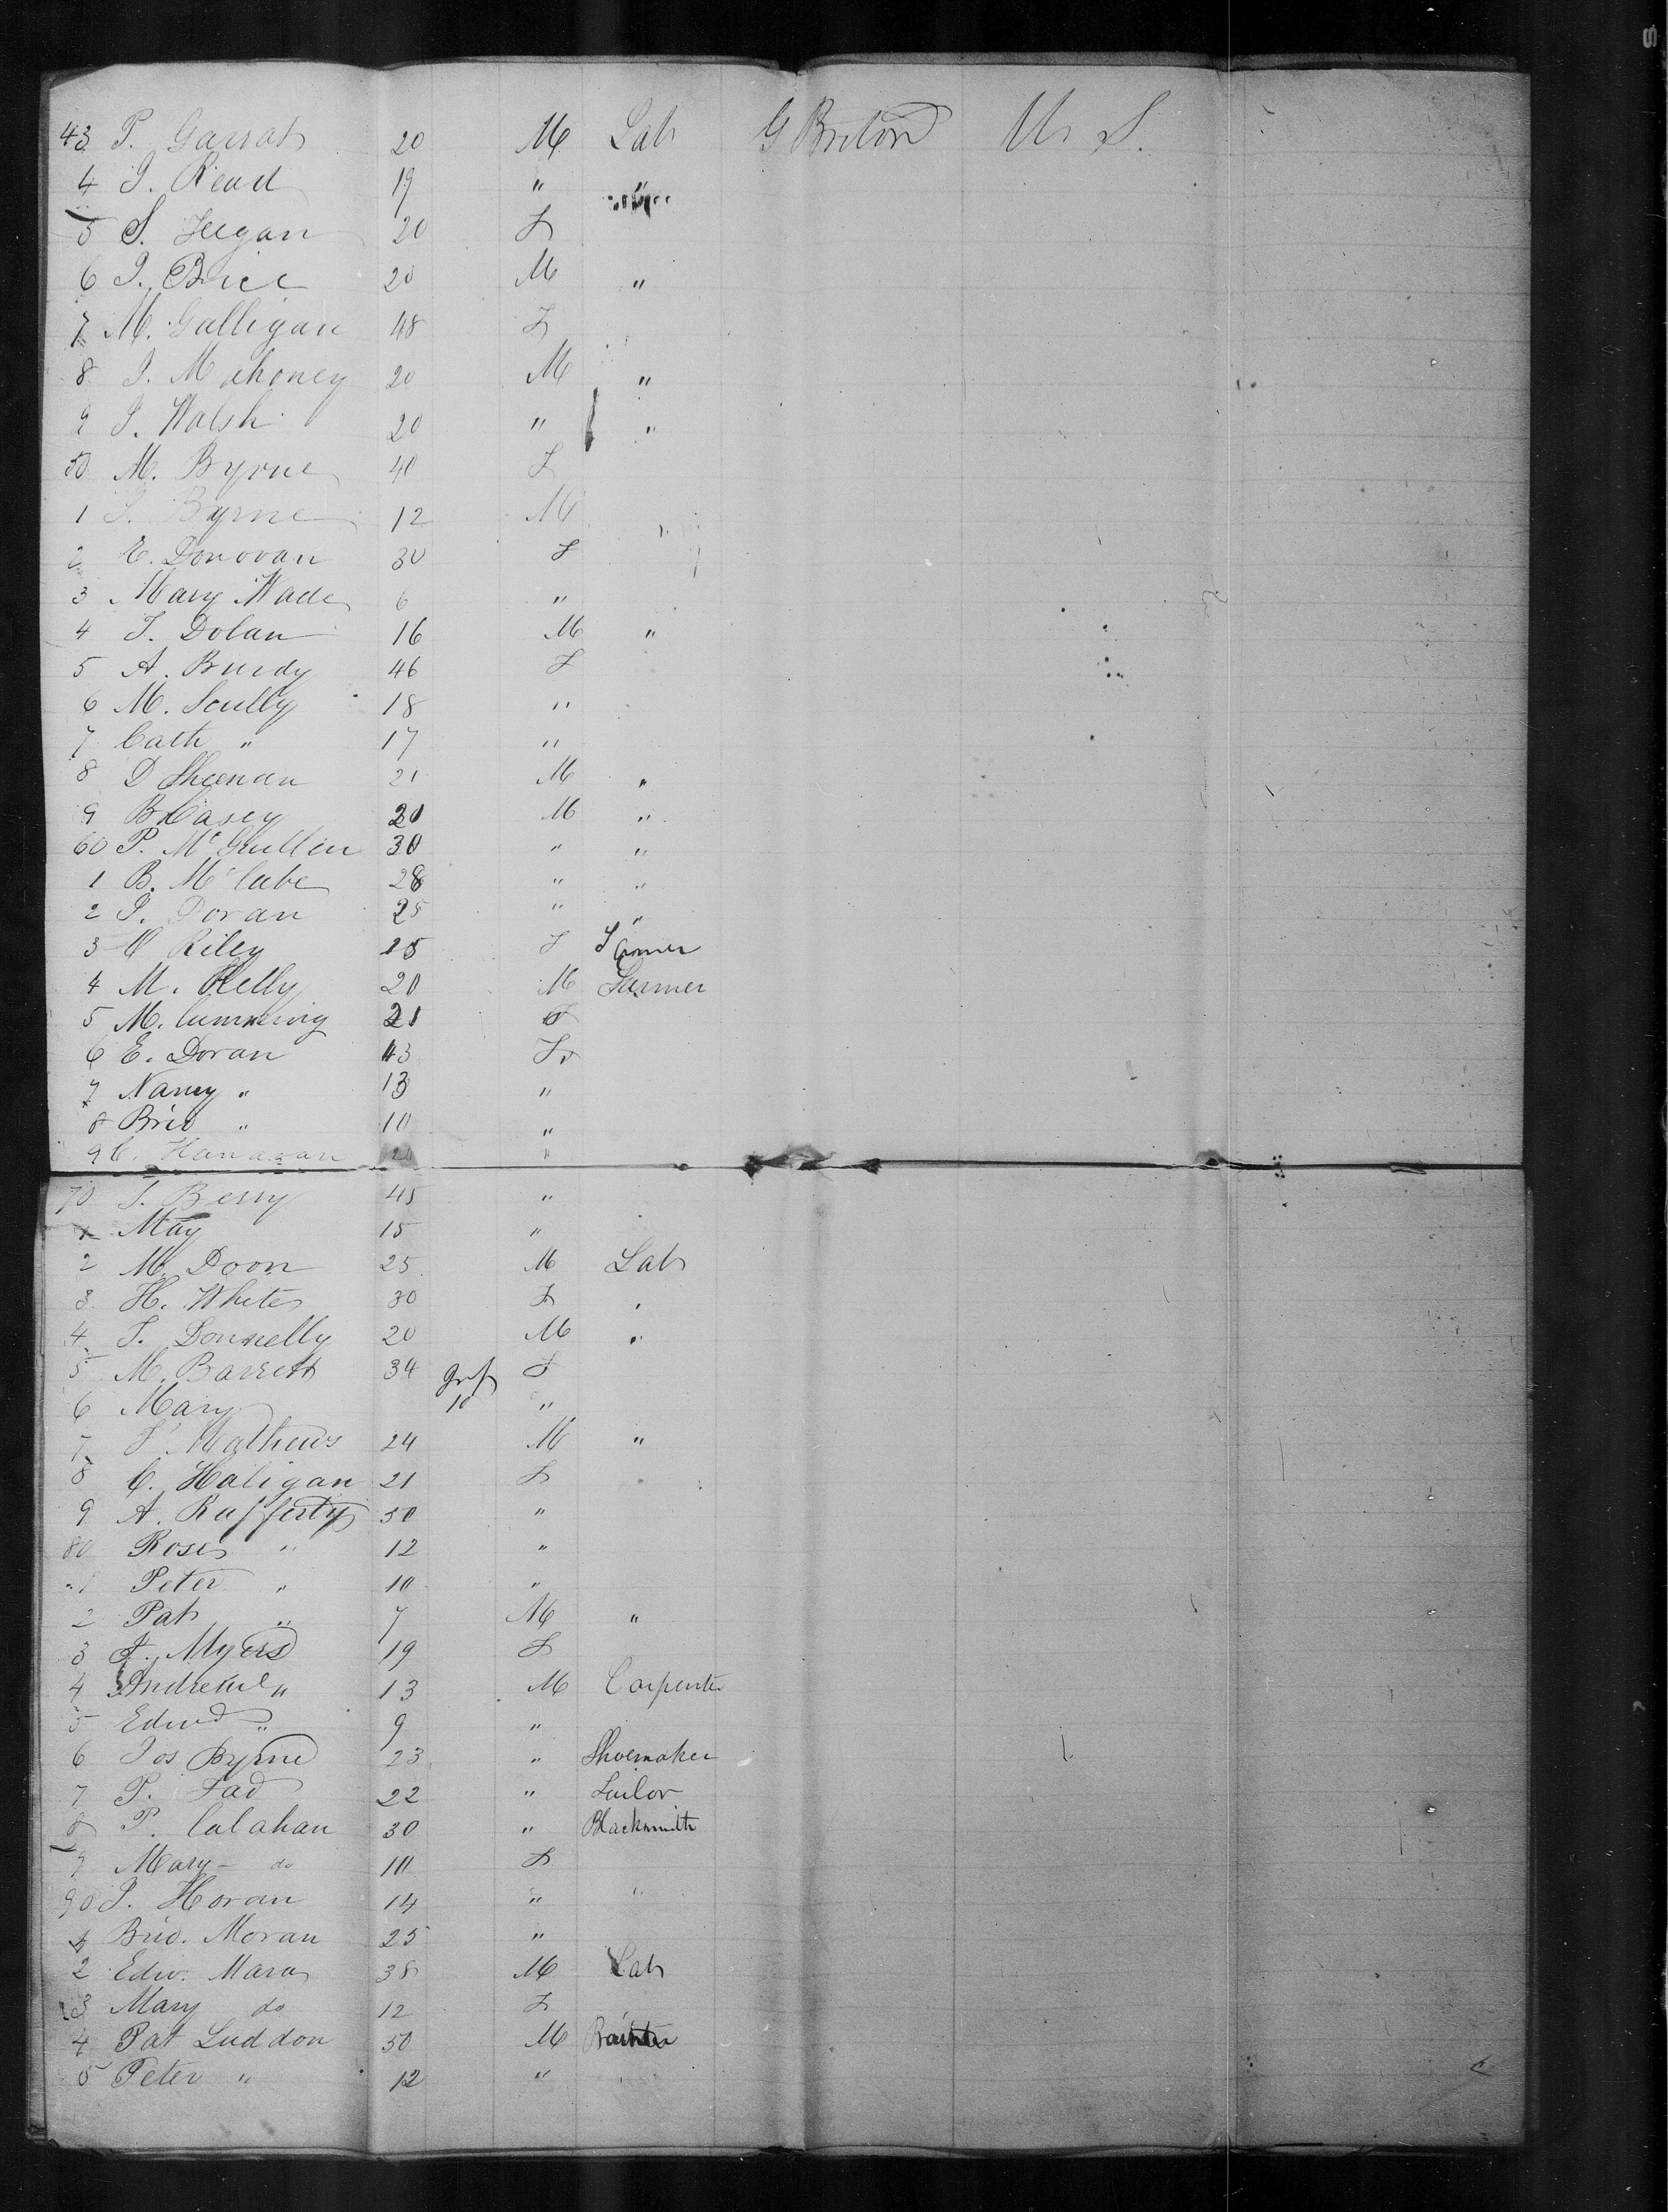 43 P. Garrat 20 M Lab G Briton U S.
4 J. Read 19 " "
5 S. Feegan 20 F
6 J. Brice 20 M "
7 M. Galligan 48 F
8 J. Mahoney 20 M "
9 J. Walsh 20 " "
50 M. Byrne 40 F
1 J. Byrne 12 M
2 E. Donovan 30 F
3 Mary Wade 6 "
4 T. Dolan 16 M "
5 A. Burdy 46 F
6 M. Scully 18 "
7 Cath " 17 "
8 D Sheenan 21 M "
9 B Casey 20 M "
60 P. McGullen 30 " "
1 B. McCabe 28 " "
2 J. Doran 25 " "
3 Riley 25 F
4 M. Kelly 20 M Farmer
5 M. Cumming 21 F
6 E. Doran 43 F
7 Nancy " 13 "
8 Brid " 10 "
9 C. Hanagan "
70 J. Berry 45 "
1 May 15 "
2 M. Doon 25 M Lab
3 H. White 30 F "
4 T. Donnelly 20 M "
5 M. Barrett 34 Inf F
6 Mary 10 "
7 Mathews 24 M "
8 C. Haligan 21 F
9 A. Rafferty 50 "
80 Rose " 12 "
1 Peter " 10 "
2 Pat " 7 M "
3 Myers 19 F
4 Andrew " 13 M Carpenter
5 Edwd " 9 "
6 Jos Byrne 23 " Shoemaker
7 P. Fad 22 " Tailor
8 P. Calahan 30 " Blacksmith
9 Mary do 10 F
90 J. Horan 14 "
1 Brid. Moran 25 "
2 Edw. Mara 38 M Lab
3 Mary do 12 F
4 Pat Luddon 50 M
5 Peter " 12 "